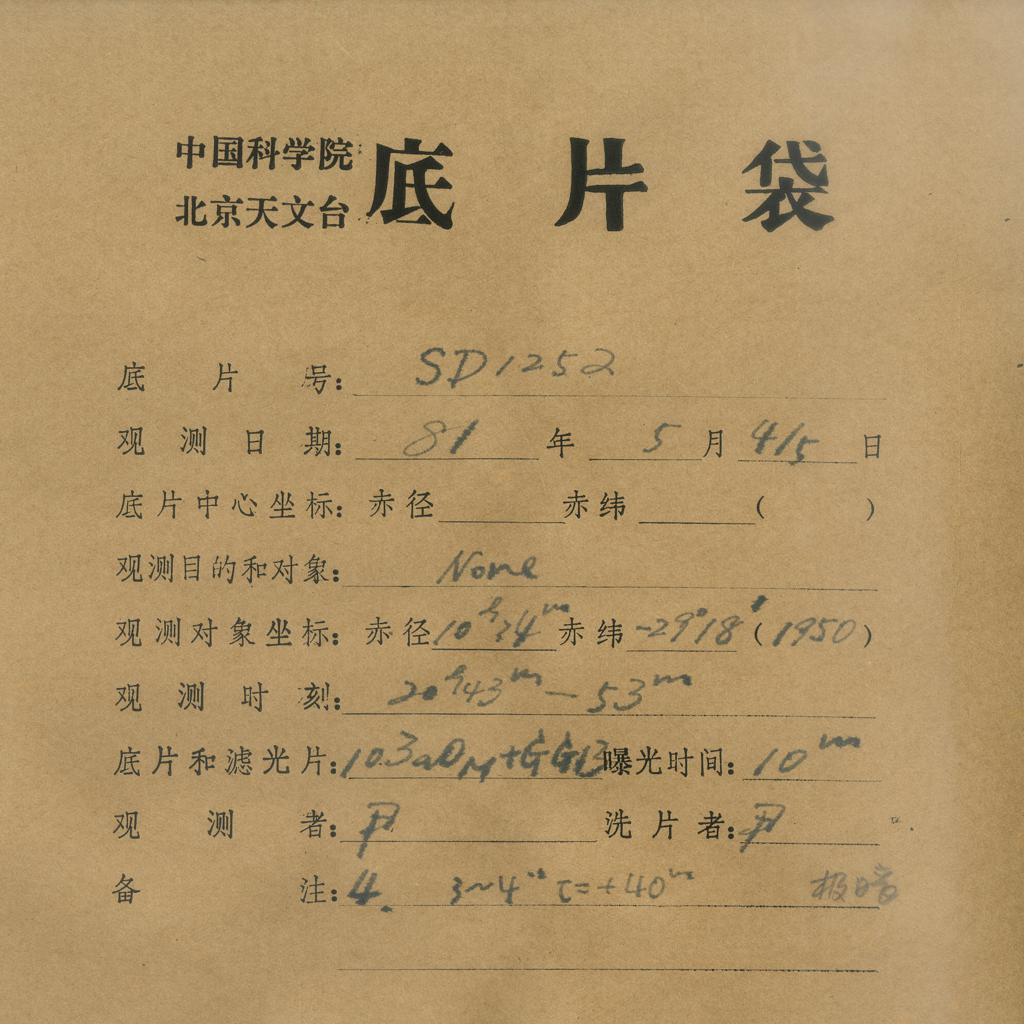 中国科学院
北京天文台
底片袋
底片号: SD1252
观测日期: 81年 5月 4/5日
底片中心坐标: 赤径 赤纬 ( )
观测目的和对象: None
观测对象坐标: 赤径 10h34m 赤纬 -29°18′ (1950)
观测时刻: 20h43m — 53m
底片和滤光片: 103aO 曝光时间: 10m
观测者: 尹
洗片者: 尹
备注: 4. 3~4" τ=+40m 极暗